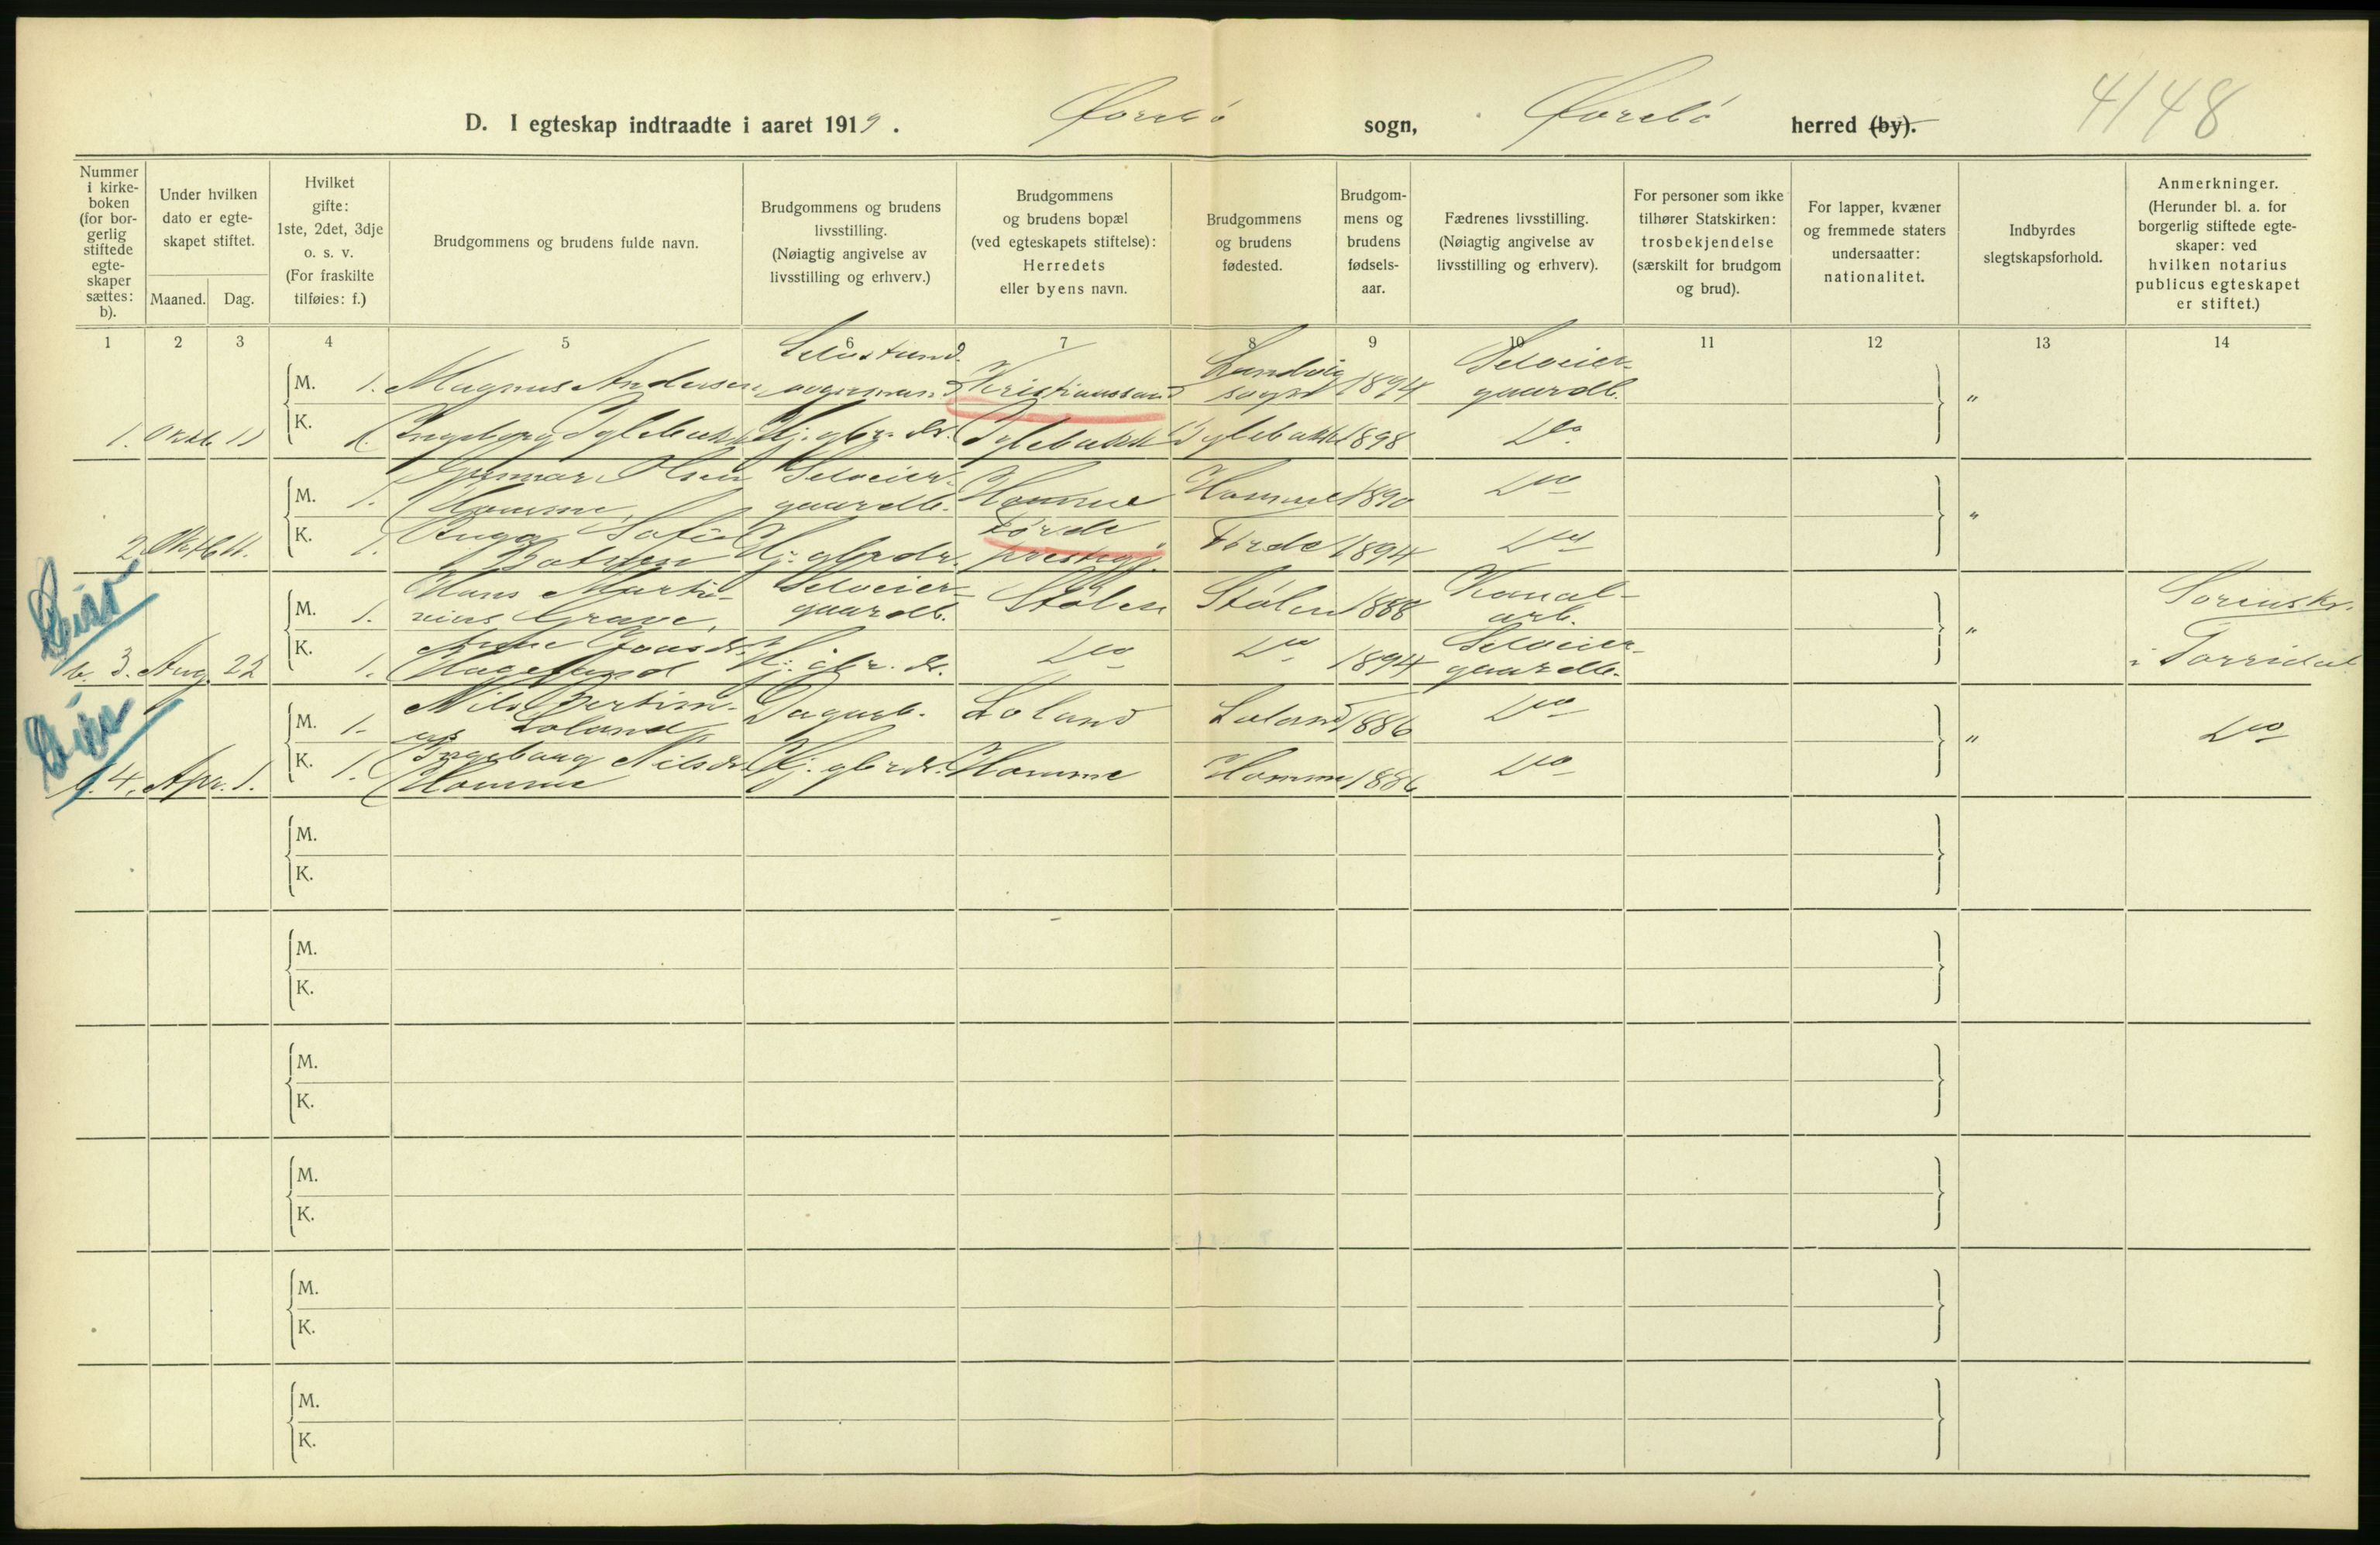 D. I egteskap indtraadte i aaret 1919. Øvrebø sogn, Øvrebø herred (by). 4148
Nummer i kirkeboken (for borgerlig stiftede egteskaper sættes: b).
Under hvilken dato er egteskapet stiftet.
Maaned. Dag.
Hvilket gifte: 1ste, 2det, 3dje o. s. v. (For fraskilte tilføies: f.)
Brudgommens og brudens fulde navn.
Brudgommens og brudens livsstilling. (Nøiagtig angivelse av livsstilling og erhverv.)
Brudgommens og brudens bopæl (ved egteskapets stiftelse): Herredets eller byens navn.
Brudgommens og brudens fødested.
Brudgommens og brudens fødselsaar.
Fædrenes livsstilling. (Nøiagtig angivelse av livsstilling og erhverv).
For personer som ikke tilhører Statskirken: trosbekjendelse (særskilt for brudgom og brud).
For lapper, kvæner og fremmede staters undersaatter: nationalitet.
Indbyrdes slegtskapsforhold.
Anmerkninger. (Herunder bl. a. for borgerlig stiftede egteskaper: ved hvilken notarius publicus egteskapet er stiftet.)
1 2 3 4 5 6 7 8 9 10 11 12 13 14
M. 1. Magnus Andersen Kristianssand sogn 1894 Selveier-
gaardb. "
1. Oktb. 11 K. 1. Ingeborg Hj. gbr. dr. 1898 Do
M. 1. Olsen Homme, Selveier-
gaardb. Homme Homme 1890 Do "
2. Oktb. 11. K. 1. Inga Sofie Hj. gbr dr. Førde prestegj. Førde 1894 Do
M. 1. Hans Marti-
nius Grave, Selveier-
gaardb. Stølen Stølen 1888 Kanal-
arb. " Sorenskr.
b. 3. Aug. 22 K. 1. Hageland Hj. gbr. dr. Do Do 1894 Selveier-
gaardb. i Torridal
M. 1. Nils Loland Dagarb. Loland Loland 1886 Do " Do
b. 4. Apr. 1. K. 1. Ingeborg Nilsdr. Homme Hj. gbrdr. Homme Homme 1886 Do
M.
K.
M.
K.
M.
K.
M.
K.
M.
K.
M.
K.